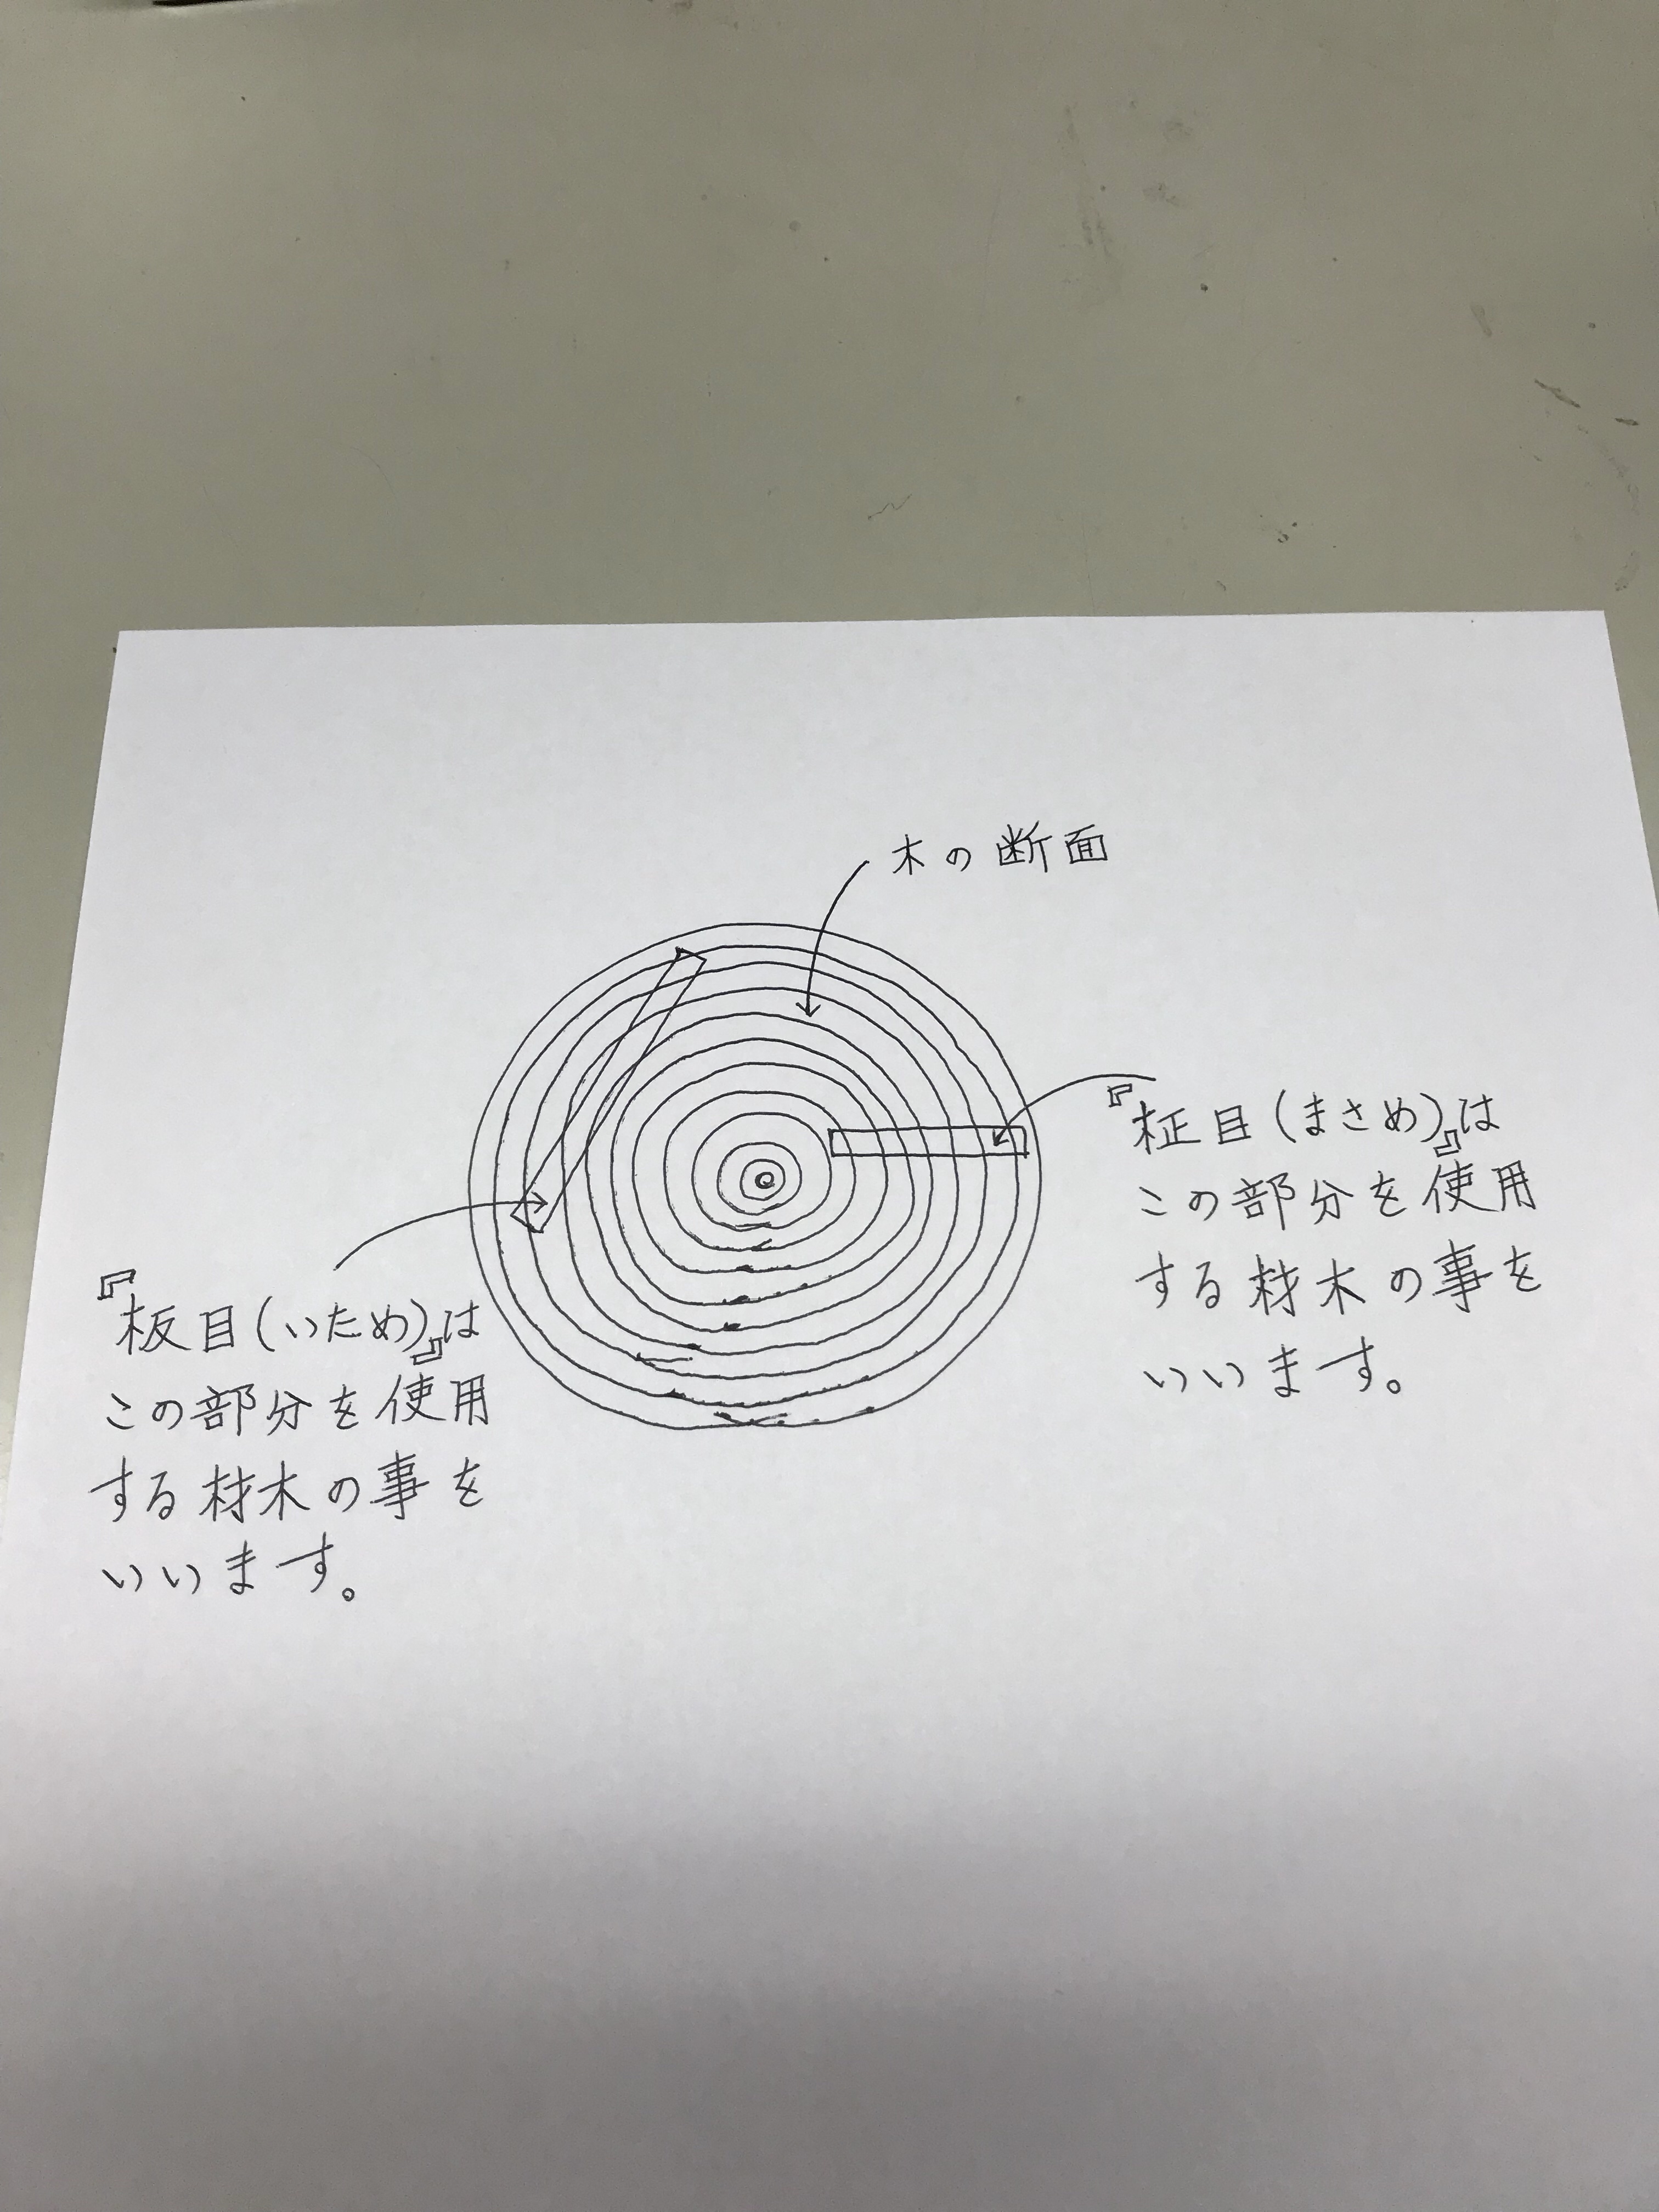 木の断面
『柾目(まさめ)』は
この部分を使用
する材木の事を
いいます。
『板目(いため)』は
この部分を使用
する材木の事を
いいます。